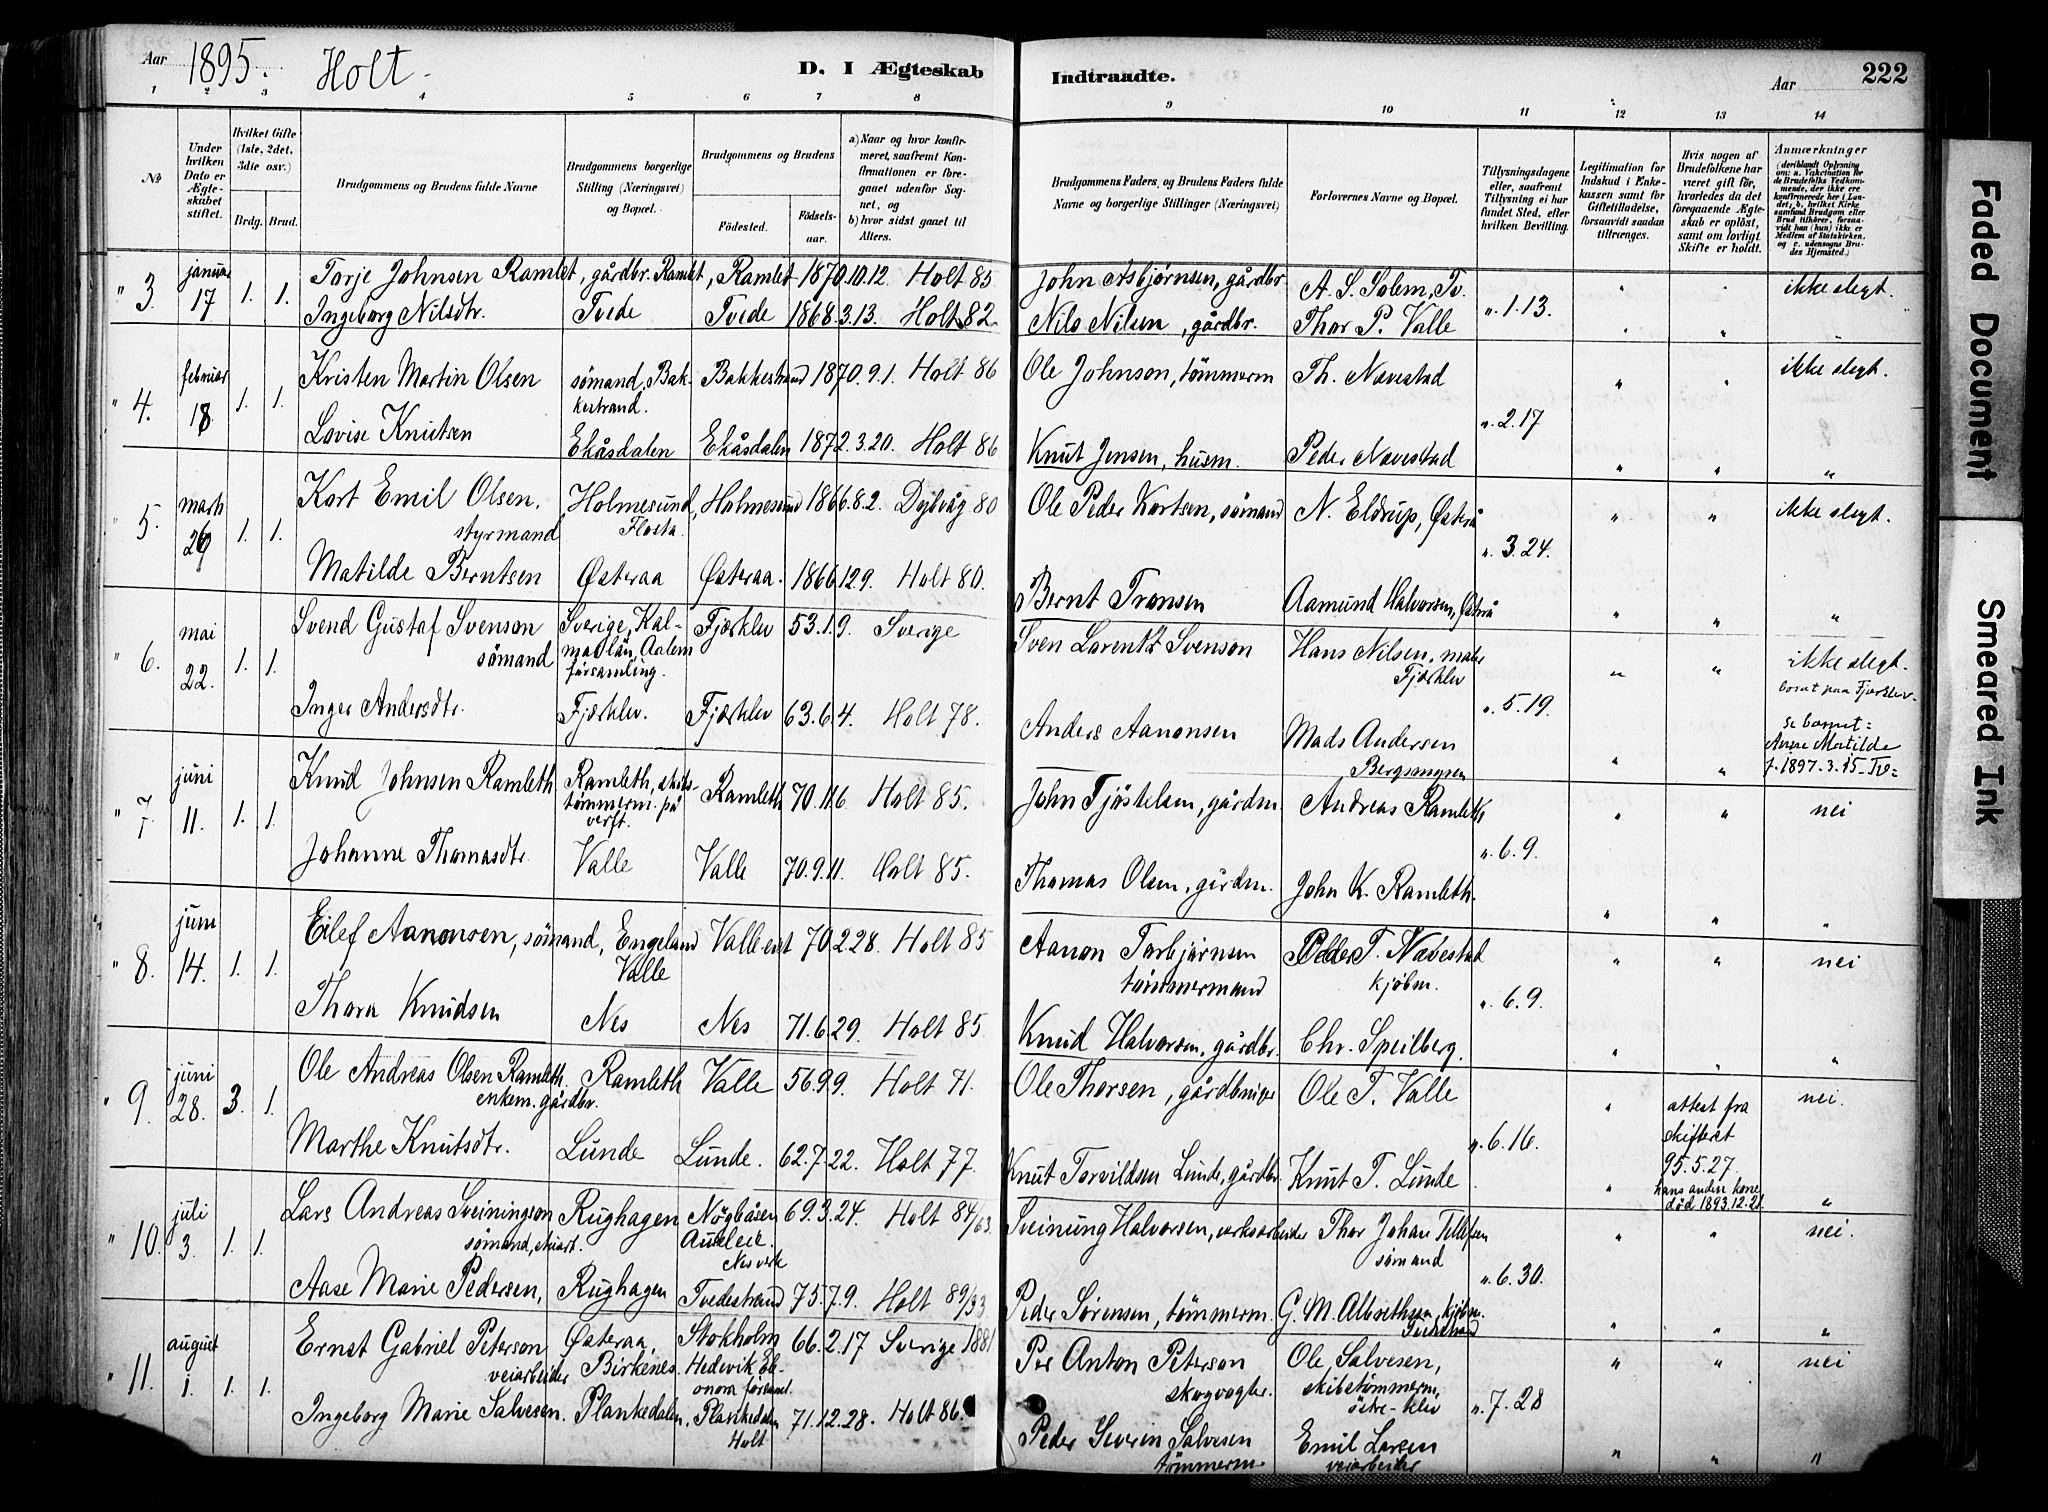 Aar 1895. Holt. D. I Ægteskab Indtraadte. Aar 222
1 2 3 4 5 6 7 8 9 10 11 12 13 14
№
Under hvilken Dato er Ægteskabet stiftet.
Hvilket Gifte (1ste, 2det, 3die osv.)
Brdg. Brud.
Brudgommens og Brudens fulde Navne
Brudgommens borgerlige Stilling (Næringsvei) og Bopæl.
Brudgommens og Brudens
Fødested.
Fødselsaar.
a) Naar og hvor konfirmeret, saafremt Konfirmationen er foregaaet udenfor Sognet, og
b) hvor sidst gaaet til Alters.
Brudgommens Faders, og Brudens Faders fulde Navne og borgerlige Stillinger (Næringsvei)
Forlovernes Navne og Bopæl.
Tillysningsdagene eller, saafremt Tillysning ei har fundet Sted, efter hvilken Bevilling.
Legitimation for Indskud i Enkekassen samt for Giftetilladelse, forsaavidt saadan tiltrænges.
Hvis nogen af Brudefolkene har været gift før, hvorledes da det foregaaende Ægteskab er opløst, samt om lovligt Skifte er holdt.
Anmærkninger (deriblandt Oplysning om: a. Vakcination for de Brudefolks Vedkommende, der ikke ere konfirmerede her i Landet; b. hvilket Kirkesamfund Brudgom eller Brud tilhører, forsaavidt han (hun) ikke er Medlem af Statskirken, og c. udensogns Brudes Hjemsted.)
" 3. januar 17 1. 1. Torje Johnsen Ramlet, gårdbr. Ramlet, Ramlet 1870.10.12. Holt 85 John Asbjørnsen, gårdbr. A. S. Solem, Tv. ". 1.13. " " ikke slegt.
Ingeborg Nilsdtr. Tvede Tvede 1868.3.13. Holt 82. Nils Nilsen, gårdbr. Thor P. Valle " " "
" 4. februar 18 1. 1. Kristen Martin Olsen sømand, Bakkestrand. Bakkestrand 1870.9.1. Holt 86 Ole Johnson, tømmerm Th. Navestad ". 2.17 " " ikke slegt.
Lovise Knutsen Ekåsdalen Ekåsdalen 1872.3.20. Holt 86 Knut Jensen, husm. Peder Navestad " " "
" 5. marts 29 1. 1. Kart Emil Olsen. styrmand Holmesund, Flosta. Holmesund 1866.8.2. Dybvåg 80 Ole Peder Kortsen, sømand N. Eldrup, Østerå ". 3.24. " " ikke slegt.
Matilde Berntsen Østeraa Østeraa. 1866.12.9. Holt 80. Bernt Tronsen Aamund Halvorsen, Østerå " " "
" 6. mai 22. 1. 1. Svend Gustaf Svenson sømand Sverige, Kalmar län, Aalem församling. Fjærklev 53.1.9. Sverige Sven Lorentz Svenson Hans Nilsen, maler Fjærklev ". 5.19. " " ikke slegt. bosat paa Fjærklev.
Inger Andersdtr. Fjærklev. Fjærklev 63.6.4. Holt 78. Anders Aanonsen Mads Andersen Bergsmyren " " se barnet: Anne Matilde f. 1897.3.15
" 7. juni 11. 1. 1. Knud Johnsen Ramleth Ramleth, skibstømmerm. på verft. Ramleth 70.11.6 Holt 85. John Tjøstelsen, gårdm. Andreas Ramleth ". 6.9. " " nei
Johanne Thomasdtr. Valle Valle 70.9.11. Holt 85. Thomas Olsen, gårdm. John K. Ramleth. " " "
" 8. juni 14. 1. 1. Eilef Aanonsen, sømand, Engelund Valle Valle 70.2.28. Holt 85 Aanon Torbjørnsen tømmermand Peder T. Navestad kjøbm. ". 6.9. " " nei
Thora Knudsen Nes Nes 71.6.29. Holt 85. Knud Halvorsen, gårdbr. Chr. Speilberg. " " "
" 9. juni 28. 3. 1. Ole Andreas Olsen Ramleth. enkem. gårdbr. Ramleth Valle 56.9.9. Holt 71. Ole Thorsen, gårdbruger Ole T. Valle ". 6.16. " attest fra skifteret 95.5.27. nei.
Marthe Knutsdtr. Lunde Lunde. 62.7.22. Holt 77. Knut Torvildsen Lunde, gårdbr. Knut T. Lunde " hans anden kone død 1893.12.21. "
" 10. juli 3. 1. 1. Lars Andreas Sveiningson sømand, stuart. Rughagen Nøgbåsen Nesverk 69.3.24. Holt 84/63 Sveinung Halvorsen, verksarbeider Thor Johan Tellefsen sømand ". 6.30. " " nei.
Aase Marie Pedersen, Rughagen Tvedestrand 75.7.9. Holt 89/33 Peder Sørensen, tømmerm. G. M. Albrethson, kjøbm. Tvedestrand " " "
" 11. august 1. 1. 1. Ernst Gabriel Peterson veiarbeider Østeraa, Birkenes. Stokholm Hedevik Eleonora forsaml. 66.2.17 Sverige 1881 Per Anton Peterson skogvogter. Ole Salvesen, skibstømmerm, østre-klev ". 7.28 " " nei
Ingeborg Marie Salvesen. Plankedalen, Plankedalen Holt 71.12.28. Holt 86. Peder Severin Salvesen tømmerm Emil Larsen veiarbeider " " "
Faded Document
Smeared Ink